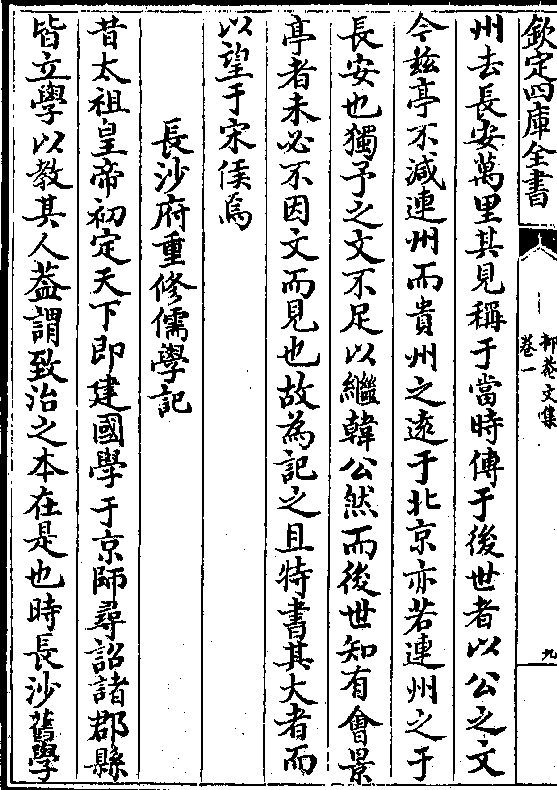 欽定四庫全書
抑菴文集
卷一
九
州去長安萬里其見稱于當時傳于後世者以公之文
今兹亭不減連州而貴州之逺于北京亦若連州之于
長安也獨予之文不足以繼韓公然而後世知有會景
亭者未必不因文而見也故為記之且特書其大者而
以望于宋侯焉
長沙府重修儒學記
昔太祖皇帝初定天下即建國學于京師尋詔諸郡縣
皆立學以教其人葢謂致治之本在是也時長沙舊學